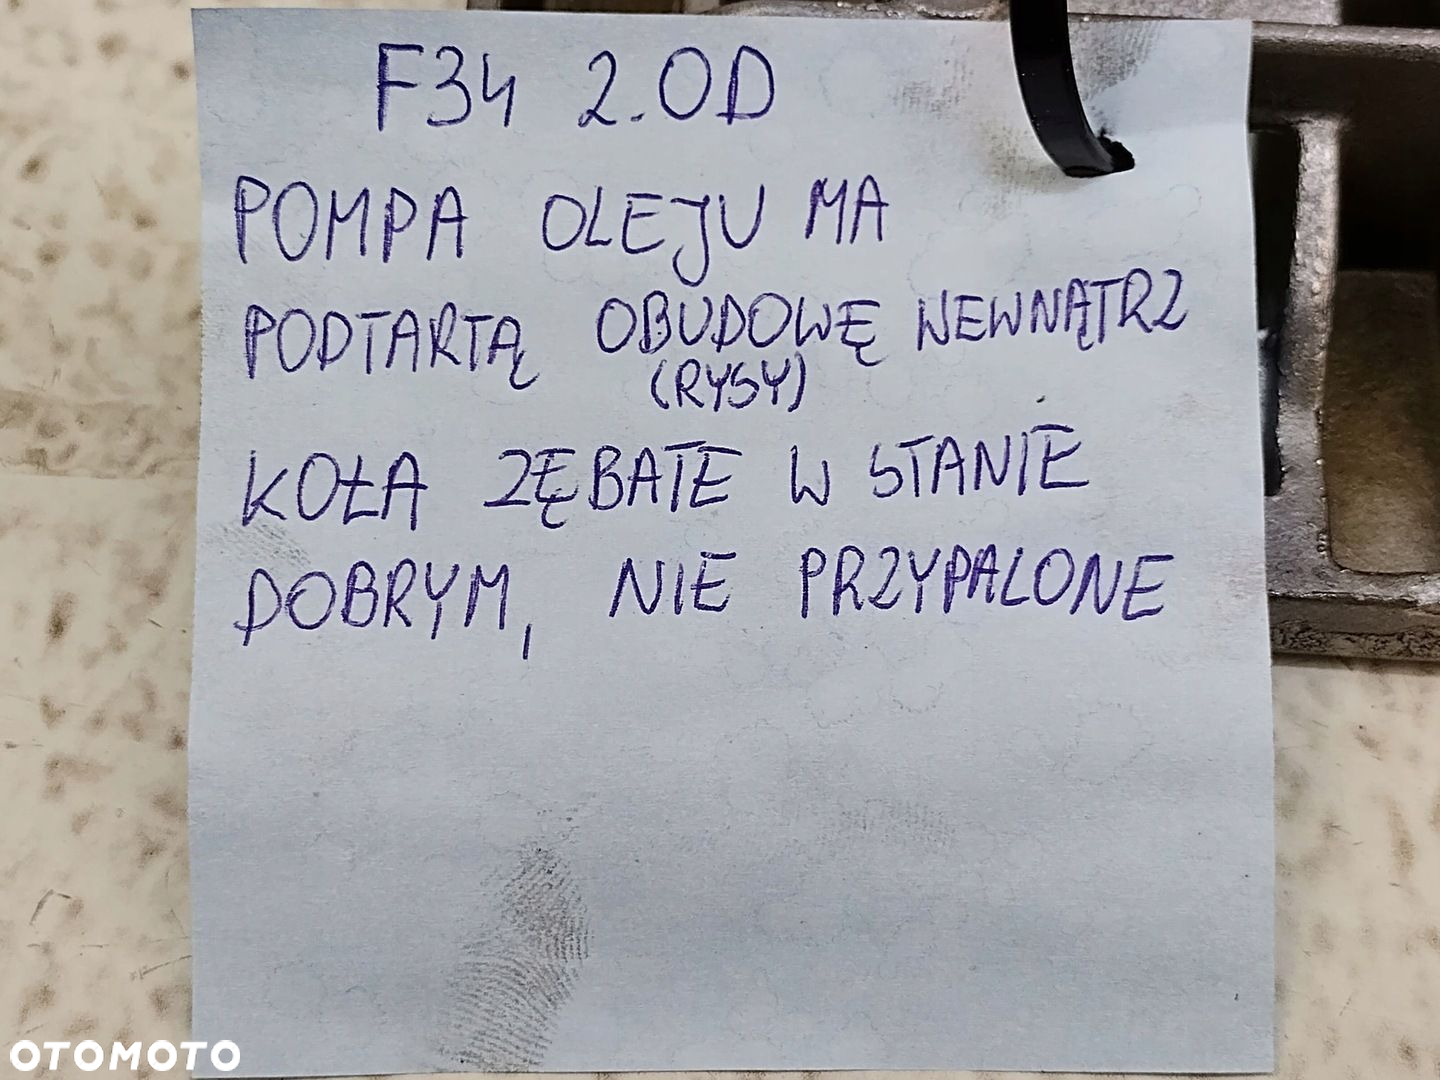 F34 2.0D
POMPA OLEJU MA
PODTARTĄ OBUDOWĘ WEWNĄTRZ
(RYSY)
KOŁA ZĘBATE W STANIE
DOBRYM, NIE PRZYPALONE
OTOMOTO